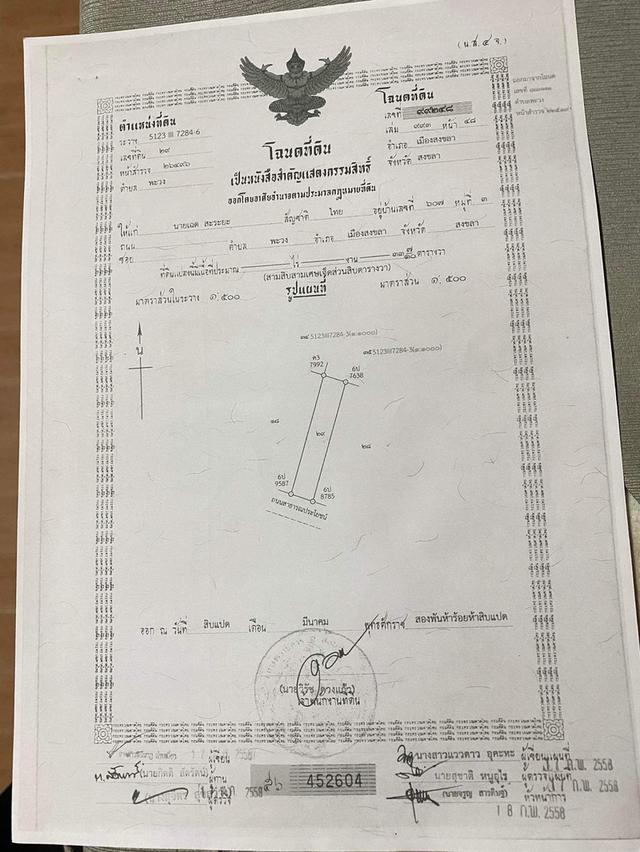 (น.ส.๔ จ.)
ตำแหน่งที่ดิน
ระวาง 5123 III 7284-6
เลขที่ดิน ๒๙
หน้าสำรวจ ๒๖๔๙๖
ตำบล พะวง
โฉนดที่ดิน
เลขที่ ๙๙๒๔๘
เล่ม ๙๙๓ หน้า ๔๘
อำเภอ เมืองสงขลา
จังหวัด สงขลา
โฉนดที่ดิน
เป็นหนังสือสำคัญแสดงกรรมสิทธิ์
ออกโดยอาศัยอำนาจตามประมวลกฎหมายที่ดิน
ให้แก่ นายเฉด สะระยะ สัญชาติ ไทย อยู่บ้านเลขที่ ๖๐๗ หมู่ที่ ๓
ถนน
ซอย ตำบล พะวง อำเภอ เมืองสงขลา จังหวัด สงขลา
ที่ดินแปลงนี้มีเนื้อที่ประมาณ ไร่ งาน ๓๓ ๗/๑๐ ตารางวา
(สามสิบสามเศษเจ็ดส่วนสิบตารางวา)
มาตราส่วนในระวาง ๑:๕๐๐ รูปแผนที่ มาตราส่วน ๑:๕๐๐
น
๓๔ 5123III7284-3(๑:๑๐๐๐)
๓๕ 5123III7284-3(๑:๑๐๐๐)
ค3
7992
6ป
7638
๑๘
๒๙
๒๘
6ป
9587
6ป
8785
ถนนสาธารณประโยชน์
ออก ณ วันที่ สิบแปด เดือน มีนาคม พุทธศักราช สองพันห้าร้อยห้าสิบแปด
(นายวิรัช ดวงแก้ว)
เจ้าพนักงานที่ดิน
ผู้เขียน
(นายกิตติ ฮัตรัตน์) ผู้ทาน
ผู้ตรวจ
452604
นางสาวแววดาว อุคะหะ ผู้เขียนแผนที่ ก.พ. 2558
นายสุชาติ หนูอุไร ผู้ตรวจแผนที่ ก.พ. 2558
(นายจรูญ สารดิษฐ์) หัวหน้าการ
18 ก.พ. 2558